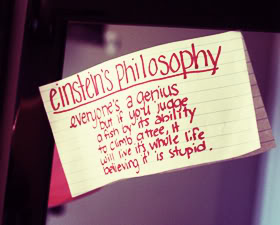 einstein's philosophy
everyone's a genius
but if you judge
a fish by its ability
to climb a tree, it
will live it's whole life
believing it is stupid.